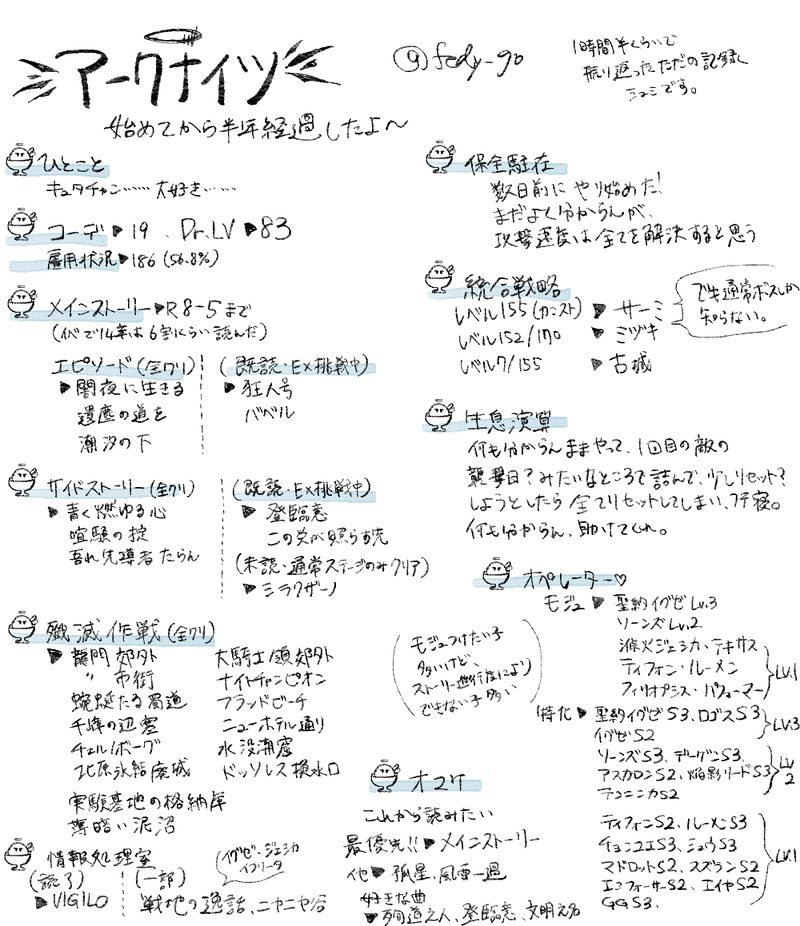 アークナイツ
始めてから半年経過したよ〜
@fedy_go
1時間半くらいで
振り返ったただの記録
シュミです。
ひとこと
キュタチャン……大好き……
コーデ▶19、Dr.LV▶83
雇用状況▶186(56.8%)
メインストーリー▶R8-5まで
(イベで14章は6割くらい読んだ)
エピソード(全クリ)
▶闇夜に生きる
遺塵の道を
潮汐の下
(既読・EX挑戦中)
▶狂人号
バベル
サイドストーリー(全クリ)
▶青く燃ゆる心
喧騒の掟
吾れ先導者たらん
(既読・EX挑戦中)
▶登臨意
この炎が照らす先
(未読・通常ステージのみクリア)
▶シラクザーノ
殲滅作戦(全クリ)
▶龍門郊外
〃 市街
蜿蜒たる蜀道
千峰の辺塞
チェルノボーグ
北原氷結廃城
実験基地の格納庫
薄暗い泥沼
大騎士領郊外
ナイトチャンピオン
ブラッドビーチ
ニューホテル通り
水没潮窟
ドッソレス換水口
情報処理室
(読了)
▶VIGILO
(一部)
戦地の逸話、ニヤニヤ谷
(イグゼ・ジェシカ
イフリータ
保全駐在
数日前にやり始めた!
まだよく分からんが、
攻撃速度は全てを解決すると思う
統合戦略
レベル155(カンスト)▶サーミ
レベル152/170▶ミヅキ
レベル7/155▶古城
でも通常ボスしか
知らない。
生息演算
何も分からんままやって、1回目の敵の
襲撃日?みたいなところで詰んで、少しリセット?
しようとしたら全てリセットしてしまい、フテ寝。
何も分からん、助けてくれ。
オペレーター♡
モジュ▶聖約イグゼLv.3
ソーンズLv.2
滌火ジェシカ・テキサス
ティフォン・ルーメン
フィリオプシス・パフューマー
Lv.1
(モジュつけたい子
多いけど、
ストーリー進行度により
できない子多い)
特化▶聖約イグゼS3、ロゴスS3
イグゼS2
Lv.3
ソーンズS3、デーゲンS3、
アスカロンS2、焔影リードS3
テンニンカS2
Lv
2
ティフォンS2、ルーメンS3
チョンユエS3、シュウS3
マドロックS2、スズランS2
エンフォーサーS2、エイヤS2
GGS3、
Lv.1
オマケ
これから読みたい
最優先!!▶メインストーリー
他▶孤星、風雪一過
好きな曲
▶殉道之人、登臨意、文明之名